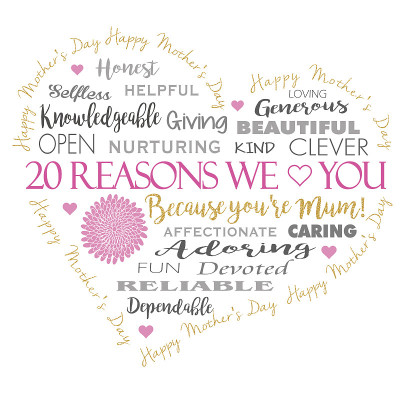 Happy Mother's Day Happy Mother's Day
Happy Mother's Day
Honest
Selfless HELPFUL
LOVING
Knowledgeable Giving
Generous
BEAUTIFUL
OPEN NURTURING KIND CLEVER
20 REASONS WE ♡ YOU
Because you're Mum!
AFFECTIONATE CARING
Adoring
FUN Devoted
RELIABLE
Dependable
Happy Mother's Day
Happy Mother's Day Happy Mother's Day